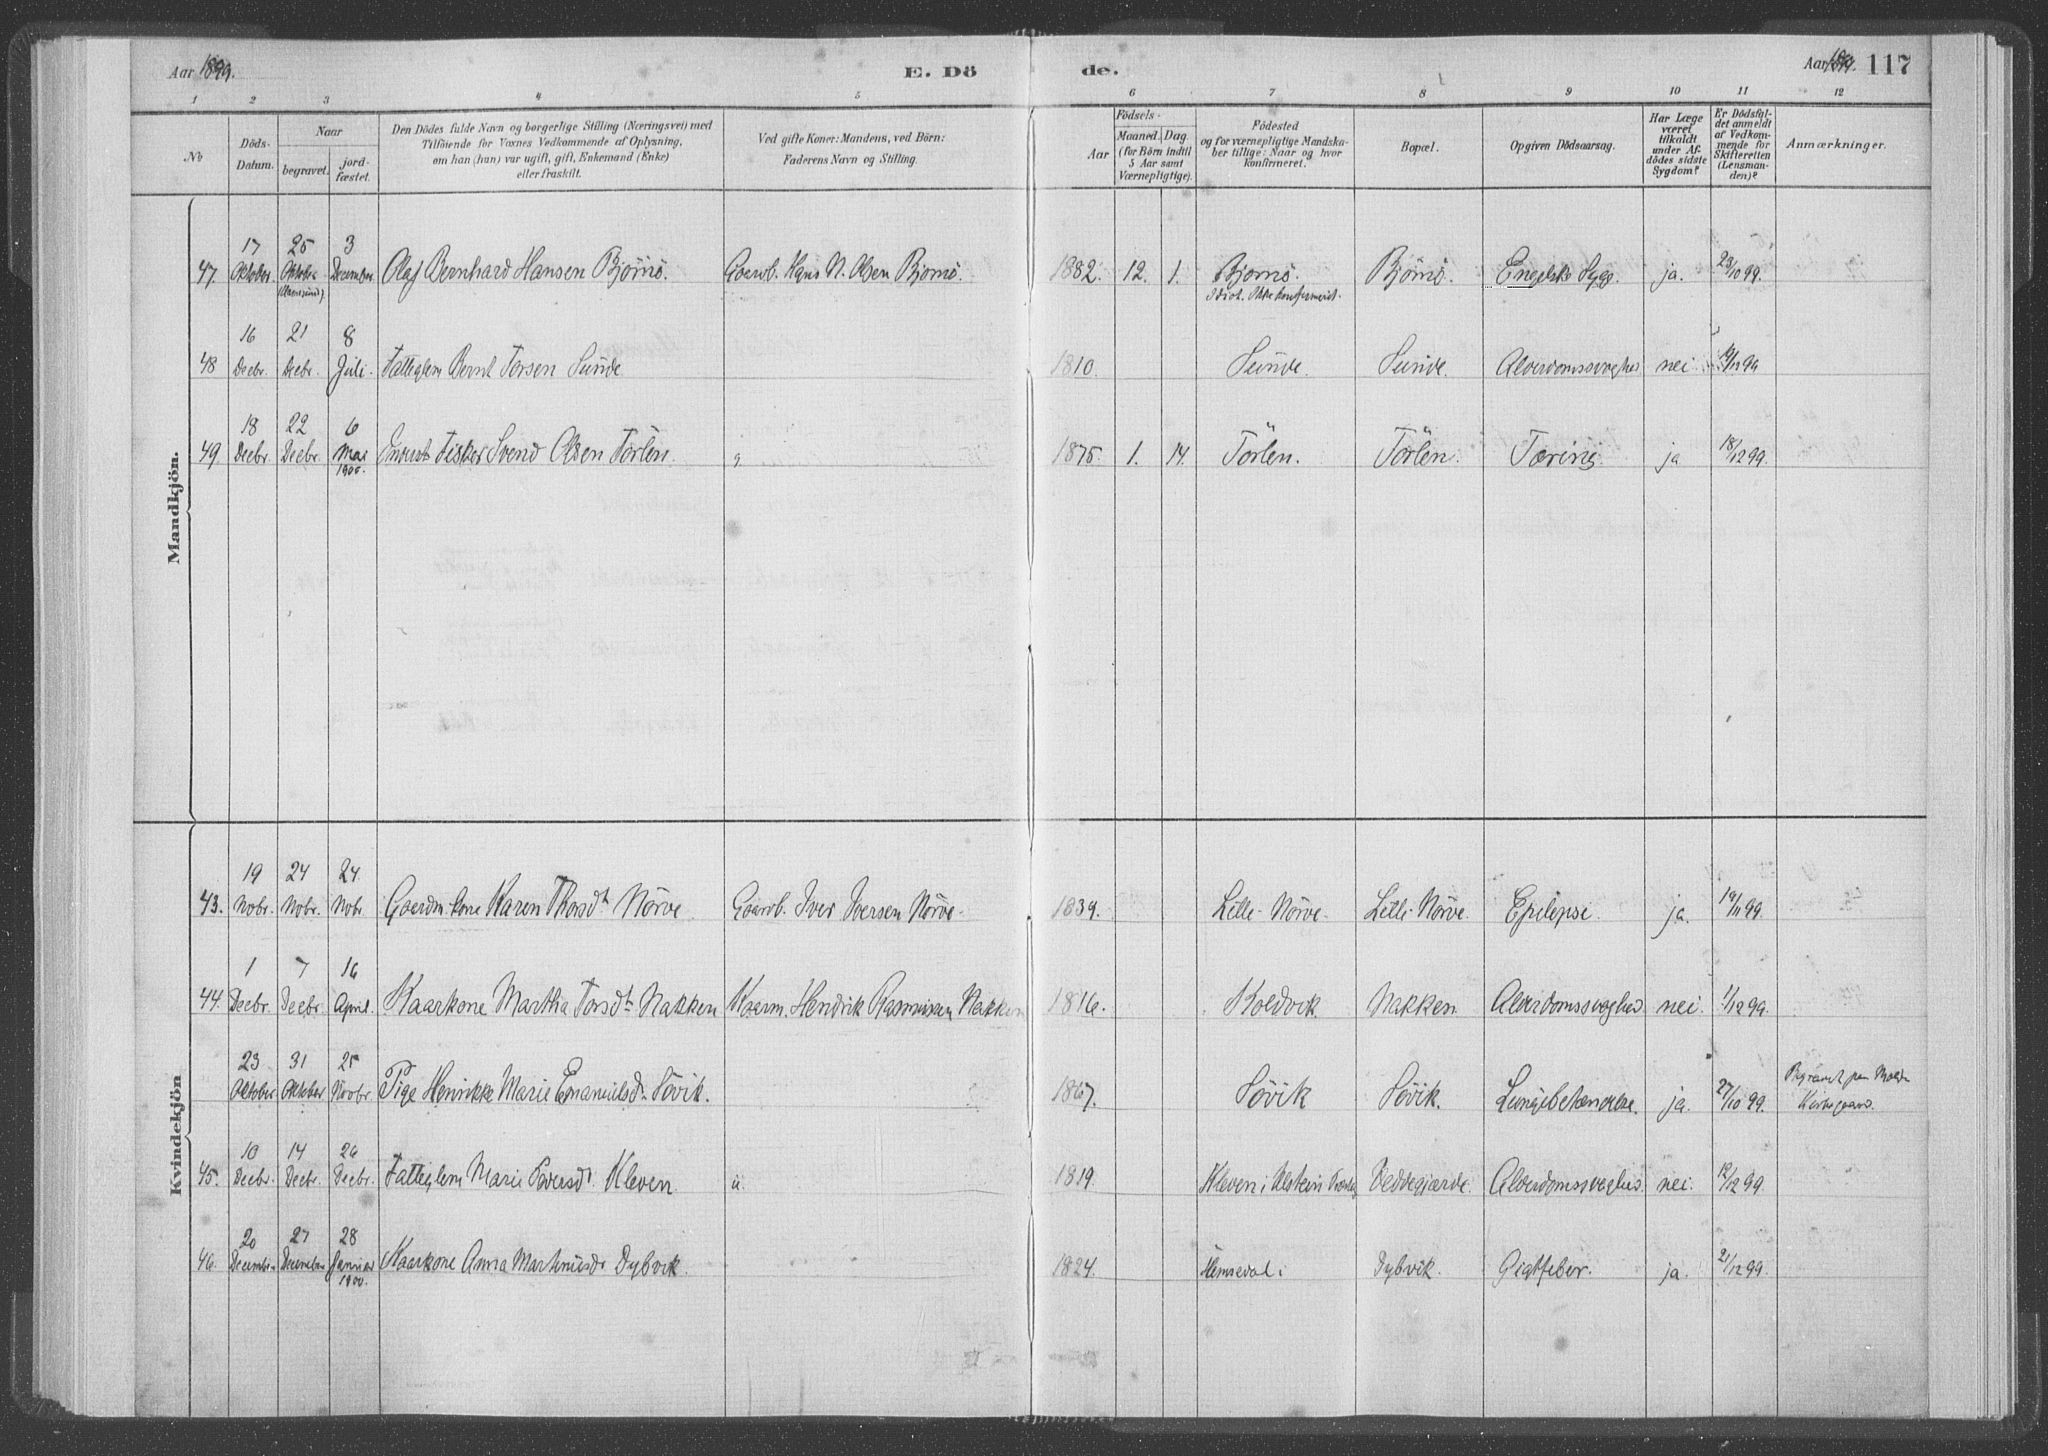 Aar 1899. E. Dö de. Aar 1899. 117
1 2 3 4 5 6 7 8 9 10 11 12
No
Döds-Datum.
Naar
begravet.
jord-fæstet.
Den Dödes fulde Navn og borgerlige Stilling (Næringsvei) med
Tilföiende for Voxnes Vedkommende af Oplysning,
om han (hun) var ugift, gift, Enkemand (Enke)
eller fraskilt.
Ved gifte Koner: Mandens, ved Börn:
Faderens Navn og Stilling.
Födsels-
Aar
Maaned. Dag.
(for Börn indtil
5 Aar samt
Værnepligtige).
Födested
og for værnepligtige Mandska-
ber tillige: Naar og hvor
konfirmeret.
Bopæl.
Opgiven Dödsaarsag.
Har Læge
været
tilkaldt
under Af-
dödes sidste
Sygdom?
Er Dödsfal-
det anmeldt
af Vedkom-
mende for
Skifteretten
(Lensman-
den)?
Anmærkninger.
Mandkjön.
17 25 3
47. Oktober. Oktober December Olaf Bernhard Hansen Bjørnø. Gaardb. Hans N. Olsen Bjørnø. 1882. 12. 1. Bjørnø. Bjørnø. Engelsk Syge. ja. 23/10 99.
Idiot. Ikke konfirmeret.
16 21 8
48 Decbr. Decbr. Juli. Fattiglem Bernt Torsen Sunde 1810. Sunde. Sunde. Alderdomssvaghed nei 19/12 99
18 22 6
49. Decbr. Decbr. Mai Fisker Svend Olsen Tørlen. 1875. 1. 14. Tørlen. Tørlen. Tæring. ja 18/12 99.
1900.
Kvindekjön
19 24 24
43. Novbr. Novbr. Novbr. Gaardm. kone Karen Thorsdt Nørve Gaardb. Iver Iversen Nørve. 1839. Lille-Nørve. Lille-Nørve. Epilepsi. ja. 19/11 99.
1 7 16
44. Decbr. Decbr. April. Kaarkone Martha Torsdt Nakken Kaarm. Hendrik Rasmussen Nakken 1816. Koldvik Nakken Alderdomssvaghed nei. 1/12 99.
23 31 25
Oktober Oktober Novbr Pige Henrikke Marie Emanuelsd. Søvik. 1867. Søvik Søvik. Lungebetændelse. ja. 27/10 99. Begravet paa Molde
Kirkegaard.
10 14 26
45. Decbr. Decbr. Decbr. Fattiglem Marie Iversdt. Kleven 1819. Kleven i Ulstein Vedegjærde. Alderdomssvaghed. nei. 12/12 99.
20 27 28
46. December December Januar Kaarkone Anna Martinusdr Dybvik. 1824. Hemsedal i Dybvik. Gigtfeber. ja. 21/12 99.
1900.